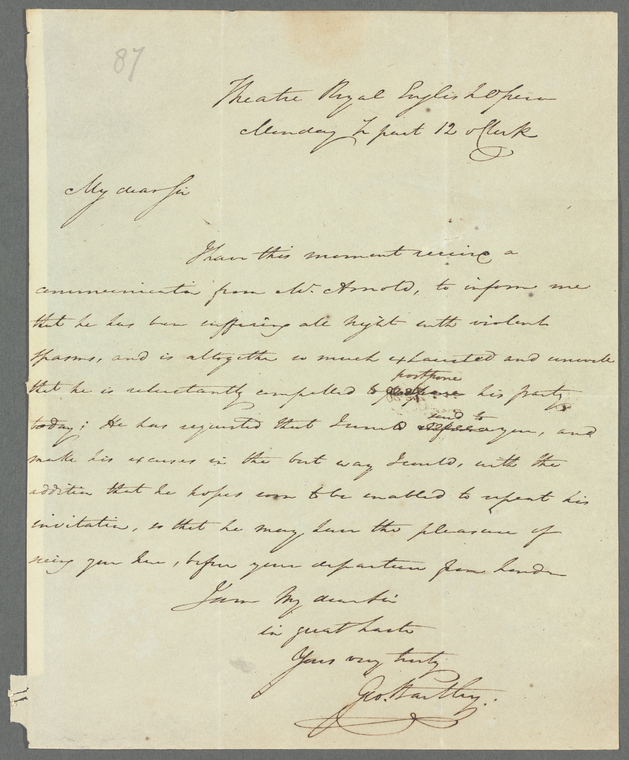 87
Theatre Royal English Opera
Monday ½ past 12 oClock
My dear Sir
I have this moment receivd a
communication from Mr. Arnold, to inform me
that he has been suffering all Night with violent
Spasms, and is altogether so much exhausted and unwell
postpone
that he is reluctantly compelled to his party
send to
today; He has requested that I would you, and
make his excuses in the best way I could, with the
addition that he hopes soon to be enabled to repeat his
invitation, so that he may have the pleasure of
seeing you here, before your departure from London
I am My dear Sir
in great haste
Yours very truly
Geo. Bartley.